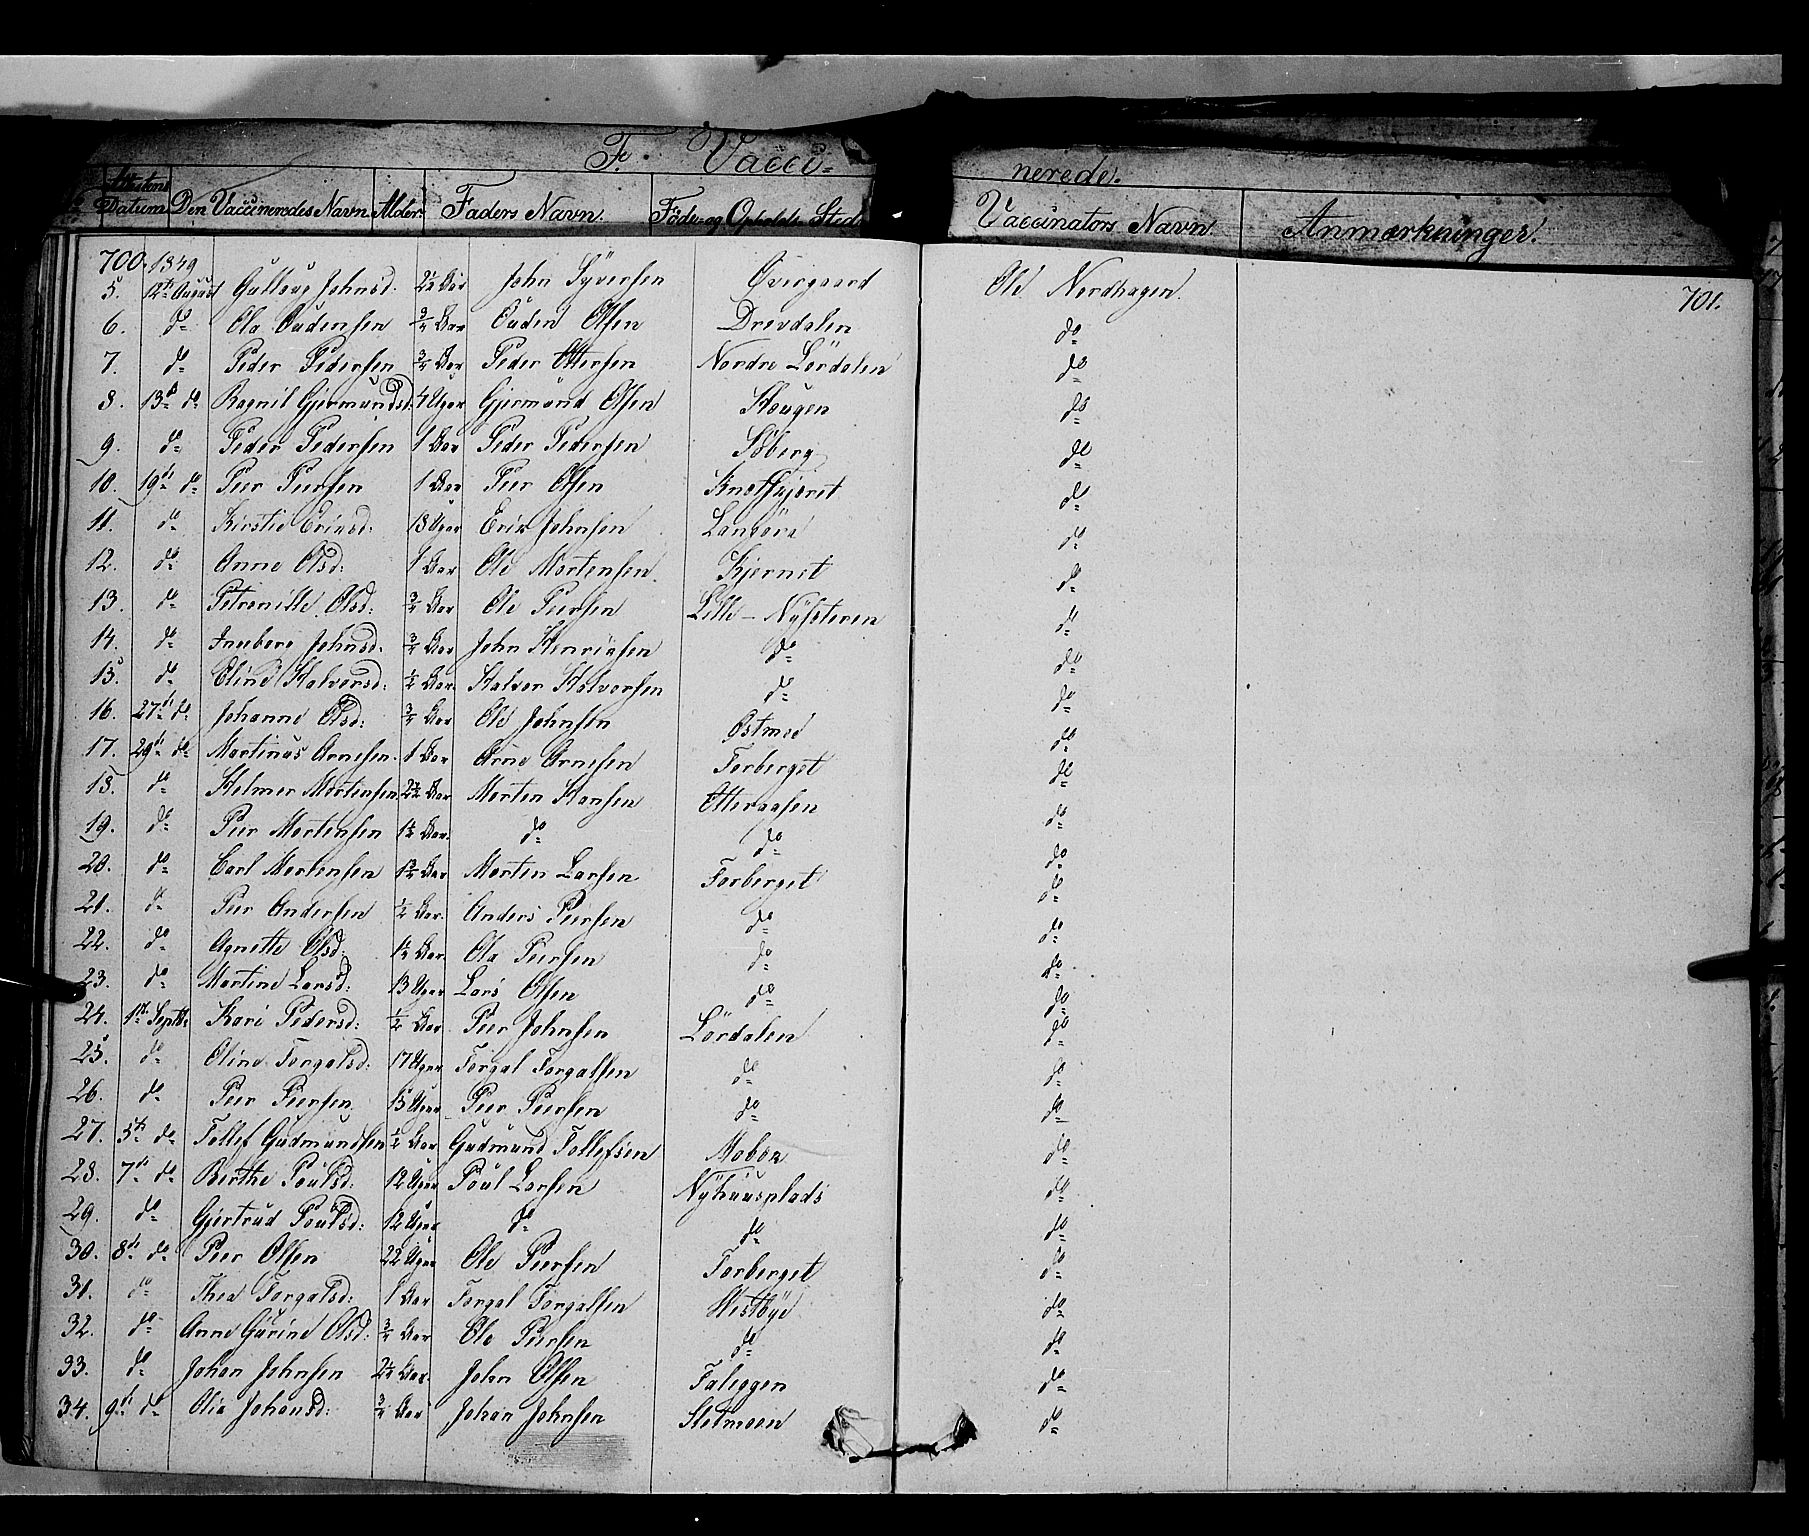 F. Vacci- nerede.
Attestens Datum Den Vaccineredes Navn. Alder. Faders Navn. Føde- og Opholds Sted Vaccinators Navn Anmærkninger.
700. 1849 701.
5. 12te August Gulloug Johnsd. 2½ Aar John Syversen Øvergaard Ole Nordhagen.
6. do Ola Oudensen ¾ Aar Ouden Olsen Drevdalen do
7. do Peder Pedersen ¾ Aar Peder Ottersen Nordre Lørdalen do
8. 13de do Ragnil Gjermundsd. Uger Gjermund Olsen Skougen do
9. do Peder Pedersen 1 Aar Peder Pedersen Søberg do
10. 19de do Peer Peersen 1 Aar Peer Olsen do
11. do Kirstie Ericsd: 13 Uger Eric Johnsen do
12. do Anne Olsd: 1 Aar Ole Mortensen Kjernet do
13. do Petronille Olsd: ¾ Aar Ole Peersen Lille-Nysæteren do
14. do Ingborg Johnsd: ¾ Aar John Henriksen do do
15. do Eline Halvorsd: ½ Aar Halvor Halvorsen do do
16. 27de do Johanne Olsd: ¾ Aar Ole Johnsen Østmoe do
17. 29de do Martinus Arnesen. 1 Aar Arne Arnesen Forberget do
18. do Helmer Mortensen 2½ Aar Morten Hansen Otteraasen do
19. do Peer Mortensen 1¼ Aar. do do do
20. do Carl Mortensen 1¾ Aar Morten Larsen Forberget do
21. do Peer Andersen ½ Aar. Anders Peersen do do
22. do Agnethe Olsd: 1¼ Aar. Ola Peersen do do
23. do Martine Larsd: 13 Uger Lars Olsen do do
24. 1ste Septbr Kari Pedersd: ½ Aar Peer Johnsen Lørdalen do
25. do Oline Torgalsd: 17 Uger Torgal Torgalsen do do
26. do Peer Peersen 15 Uger Peer Peersen do do
27. 5te do Tollef Gudmundsen ½ Aar Gudmund Tollefsen Moboe do
28. 7de do Berthe Poulsd: 12 Uger Poul Larsen Nyhuusplads do
29. do Gjertrud Poulsd: 12 Uger do do do
30. 8de do Peer Olsen 22 Uger Ole Peersen Forberget do
31. do Thea Torgalsd: 1 Aar Torgal Torgalsen Westbye do
32. do Anne Gurine Olsd: ¾ Aar Ole Peersen do do
33. do Johan Johnsen 2½ Aar. John Olsen Faleggen do
34. 9de do Olia Johansd: ¾ Aar Johan Johnsen Sletmoen do